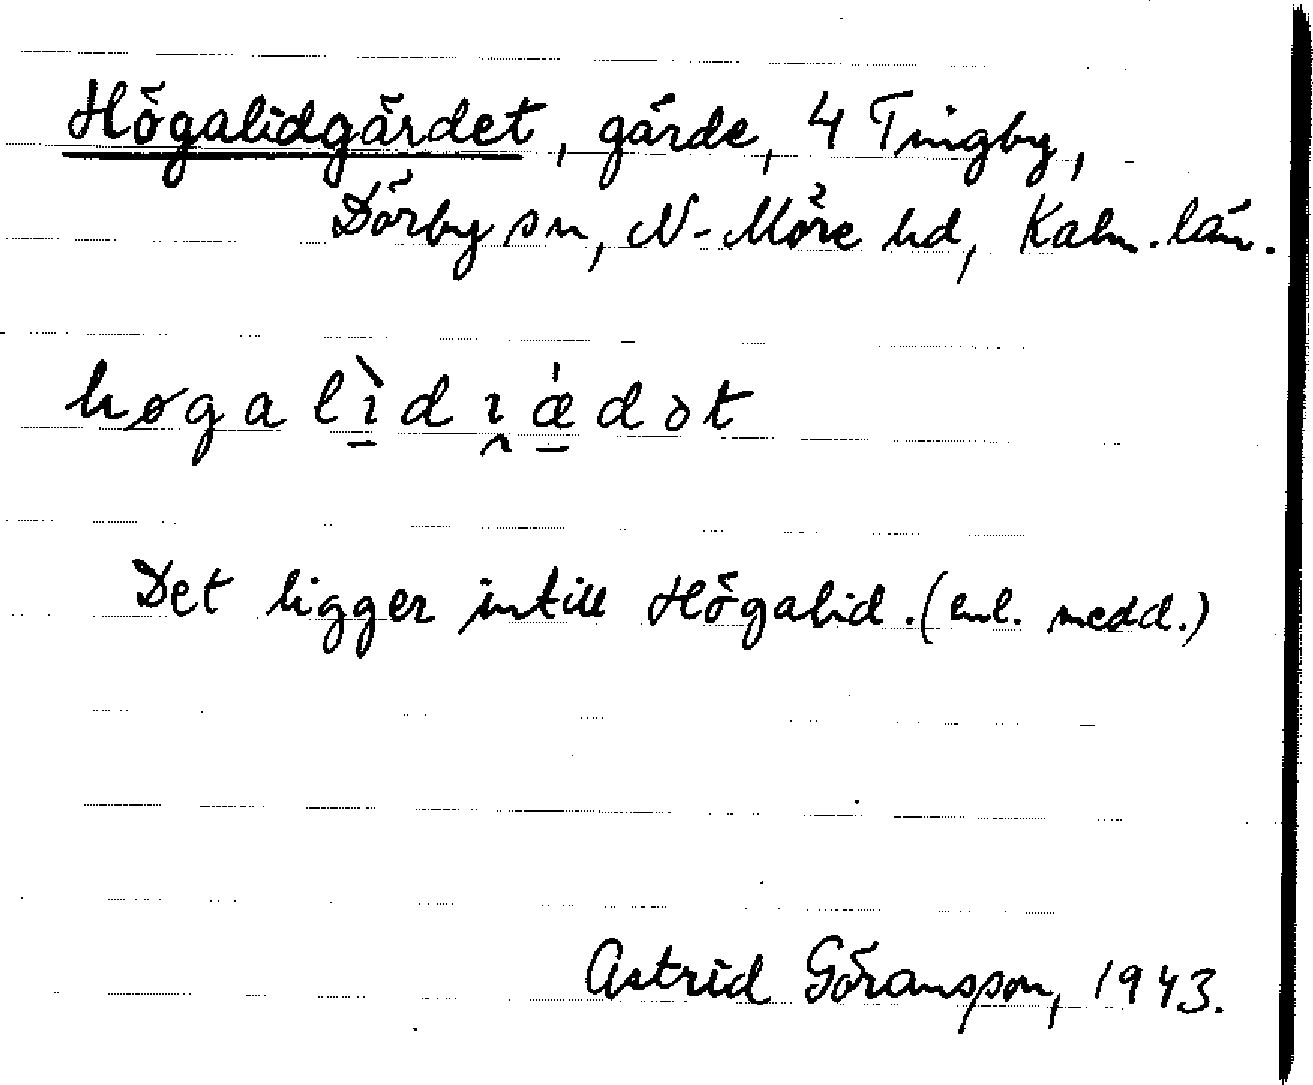 Högalidgärdet, gärde, 4 Tingby,
Dörby sn, N-Möre hd, Kalm. län.
høgalìdıǽdət
Det ligger intill Högalid. (enl. medd.)
Astrid Göransson, 1943.